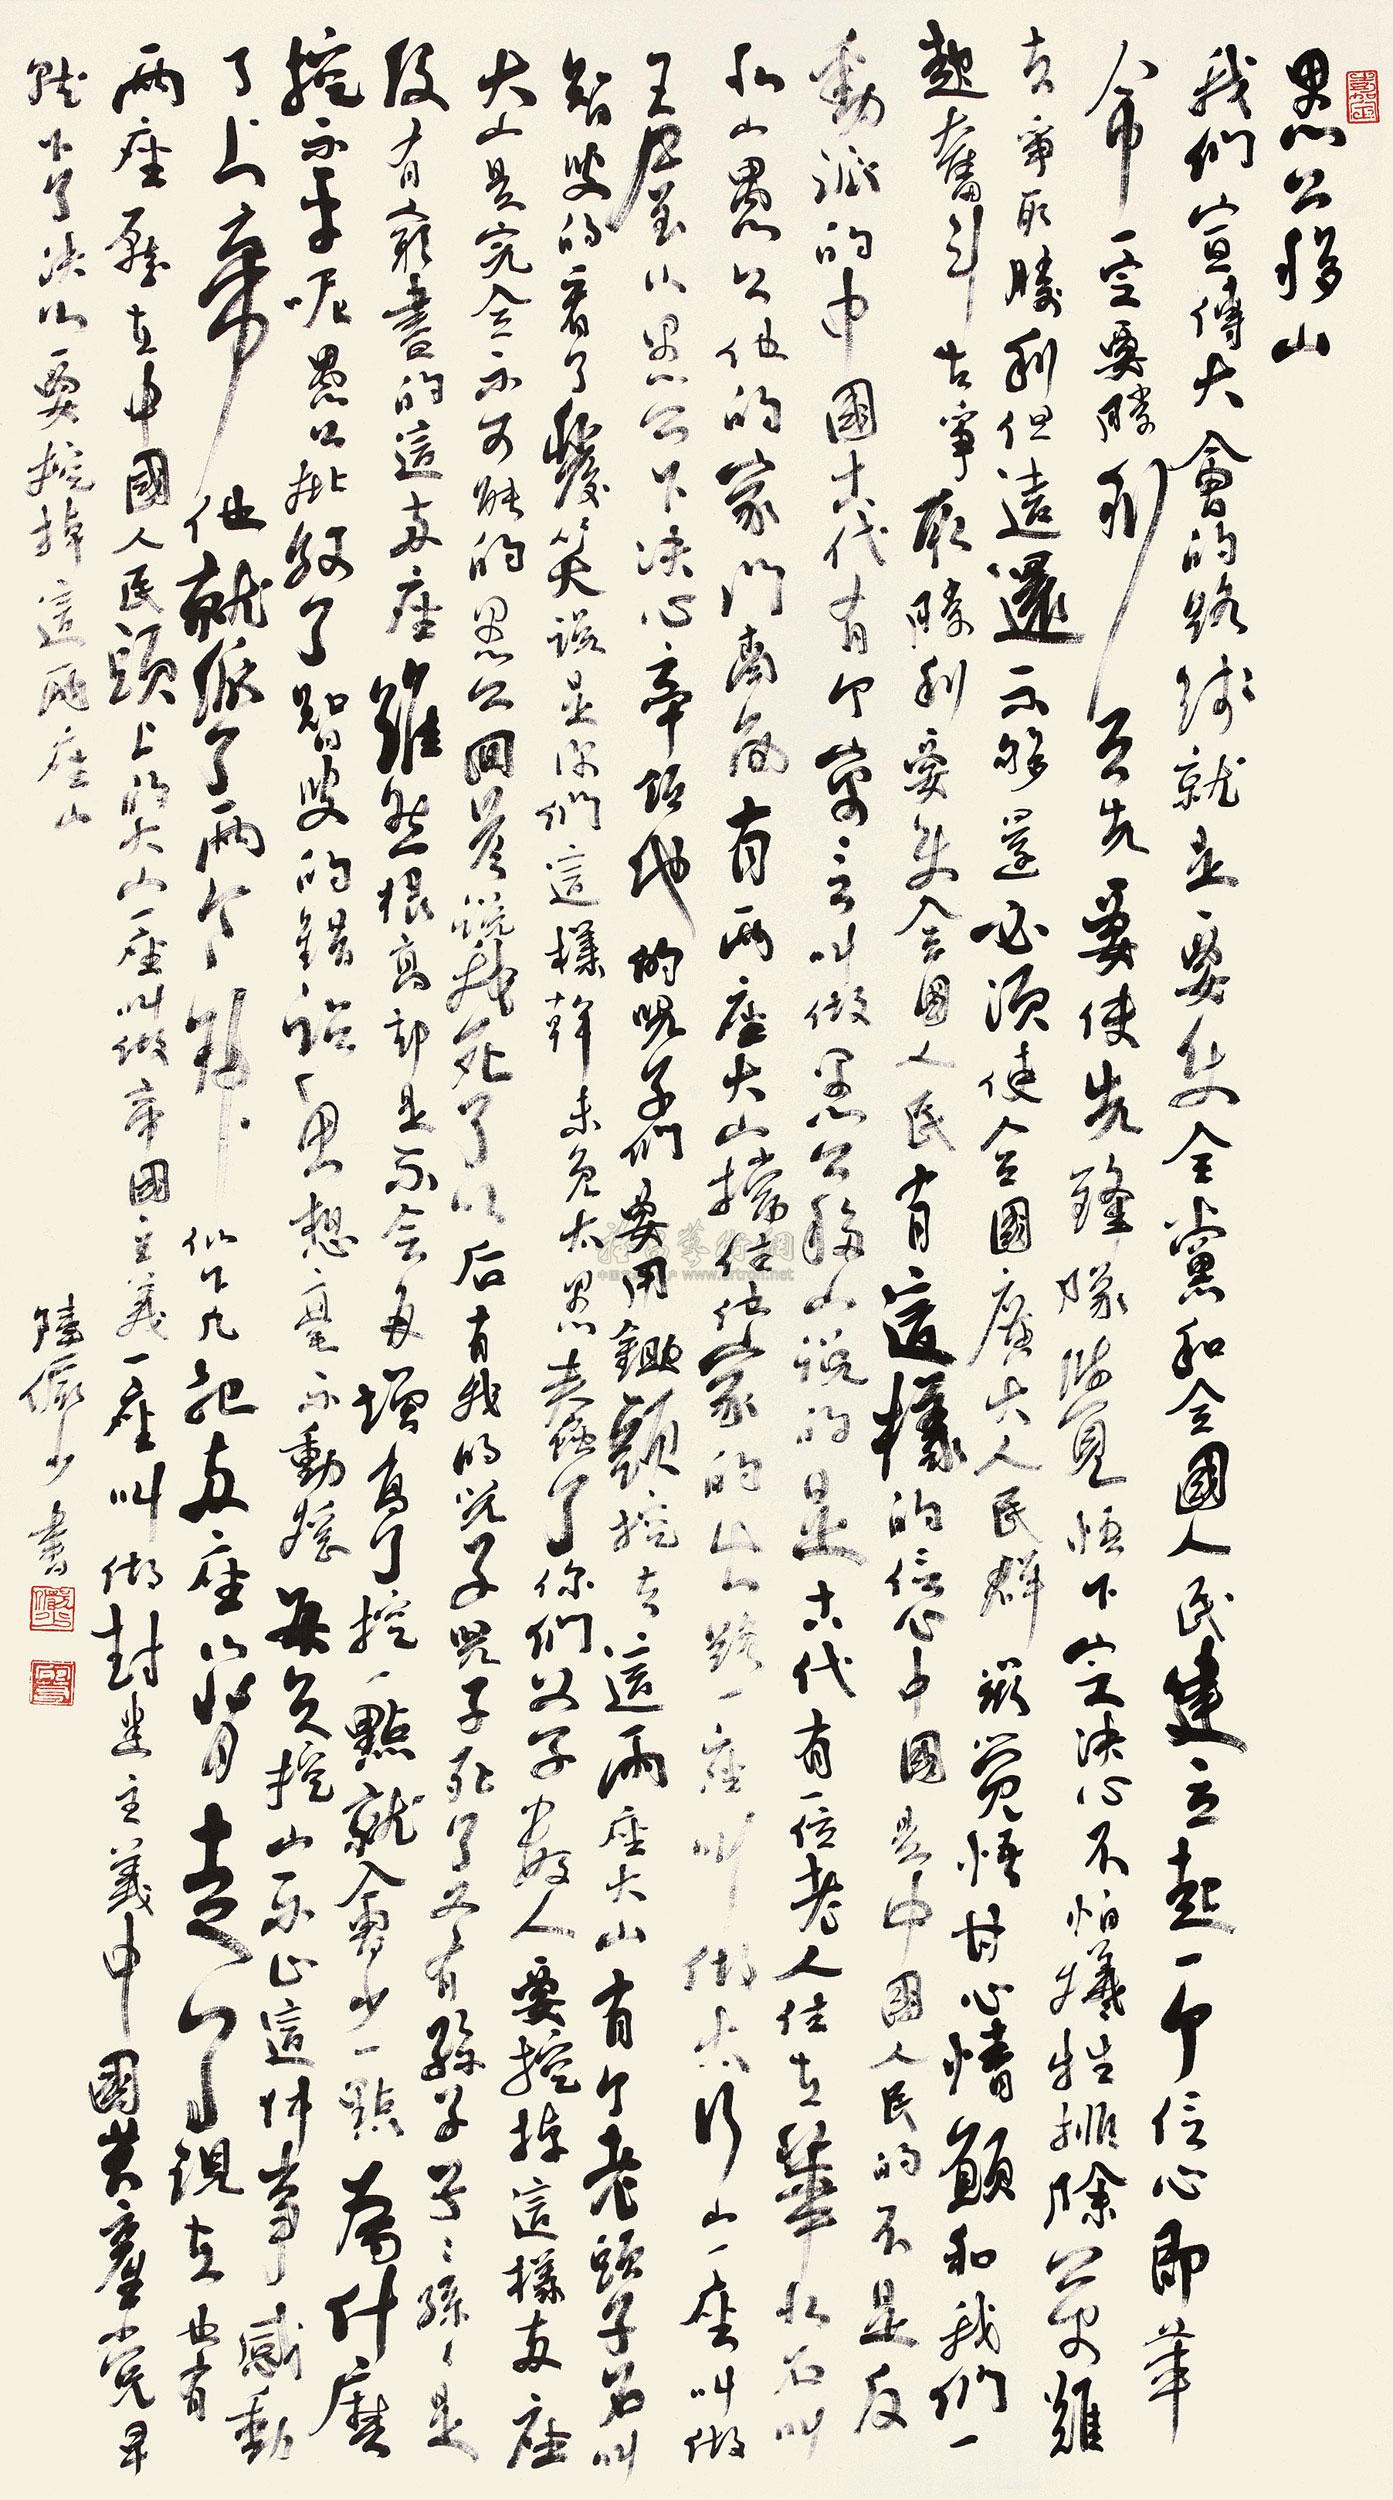 愚公移山
我们宣傳大會的路线就是要使全黨和全國人民建立起一个信心即革
命一定要勝利首先要使先鋒隊覺悟下定决心不怕犧牲排除萬難
去爭取勝利但這還不够還必須使全國廣大人民群眾覺悟甘心情願和我們一
起奮鬥去爭取勝利要使全國人民有這樣的信心中國是中國人民的不是反
動派的中國古代有个寓言叫做愚公移山說的是古代有一位老人住在華北名叫
北山愚公他的家門南面有两座大山擋住他家的出路一座叫做太行山一座叫做
王屋山愚公下决心率領他的兒子們要用鋤頭挖去這兩座大山有个老頭子名叫
智叟的看了發笑說是你們這樣幹未免太愚蠢了你們父子數人要挖掉這樣两座
大山是完全不可能的愚公回答說我死了以后有我的兒子兒子死了又有孫子子子孫孫是
没有窮盡的這两座山雖然很高却是不會再增高了挖一點就會少一點為什麽
挖不平呢愚公批駁了智叟的錯誤思想毫不動摇每天挖山不止這件事感動
了上帝他就派了兩个神仙下凡把两座山背走了現在也有
兩座壓在中國人民頭上的大山一座叫做帝國主義一座叫做封建主義中國共產党早
就下了决心要挖掉這兩座山
陸儼少書